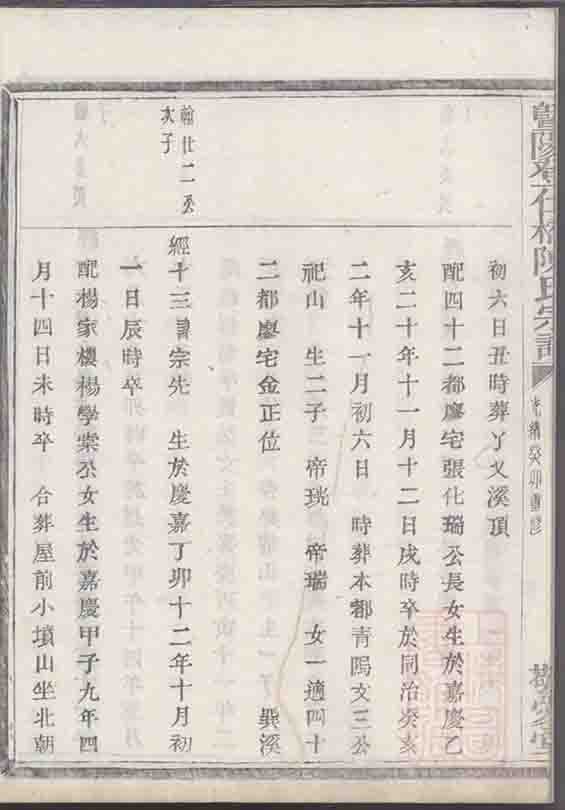 陳氏宗譜
光緒癸卯重修
初六日丑時葬丫义溪頂
配四十二都廖宅張化瑞公長女生於嘉慶乙
亥二十年十一月十二日戌時卒於同治癸亥
二年十一月初六日 時葬本都青塢文三公
祀山 生二子 帝珖 帝瑞 女一適四十
二都廖宅金正位 巽溪
翰仕二公
次子
經十三諱宗先 生於慶嘉丁卯十二年十月初
一日辰時卒
配楊家樓楊學棠公女生於嘉慶甲子九年四
月十四日未時卒 合葬屋前小墳山坐北朝